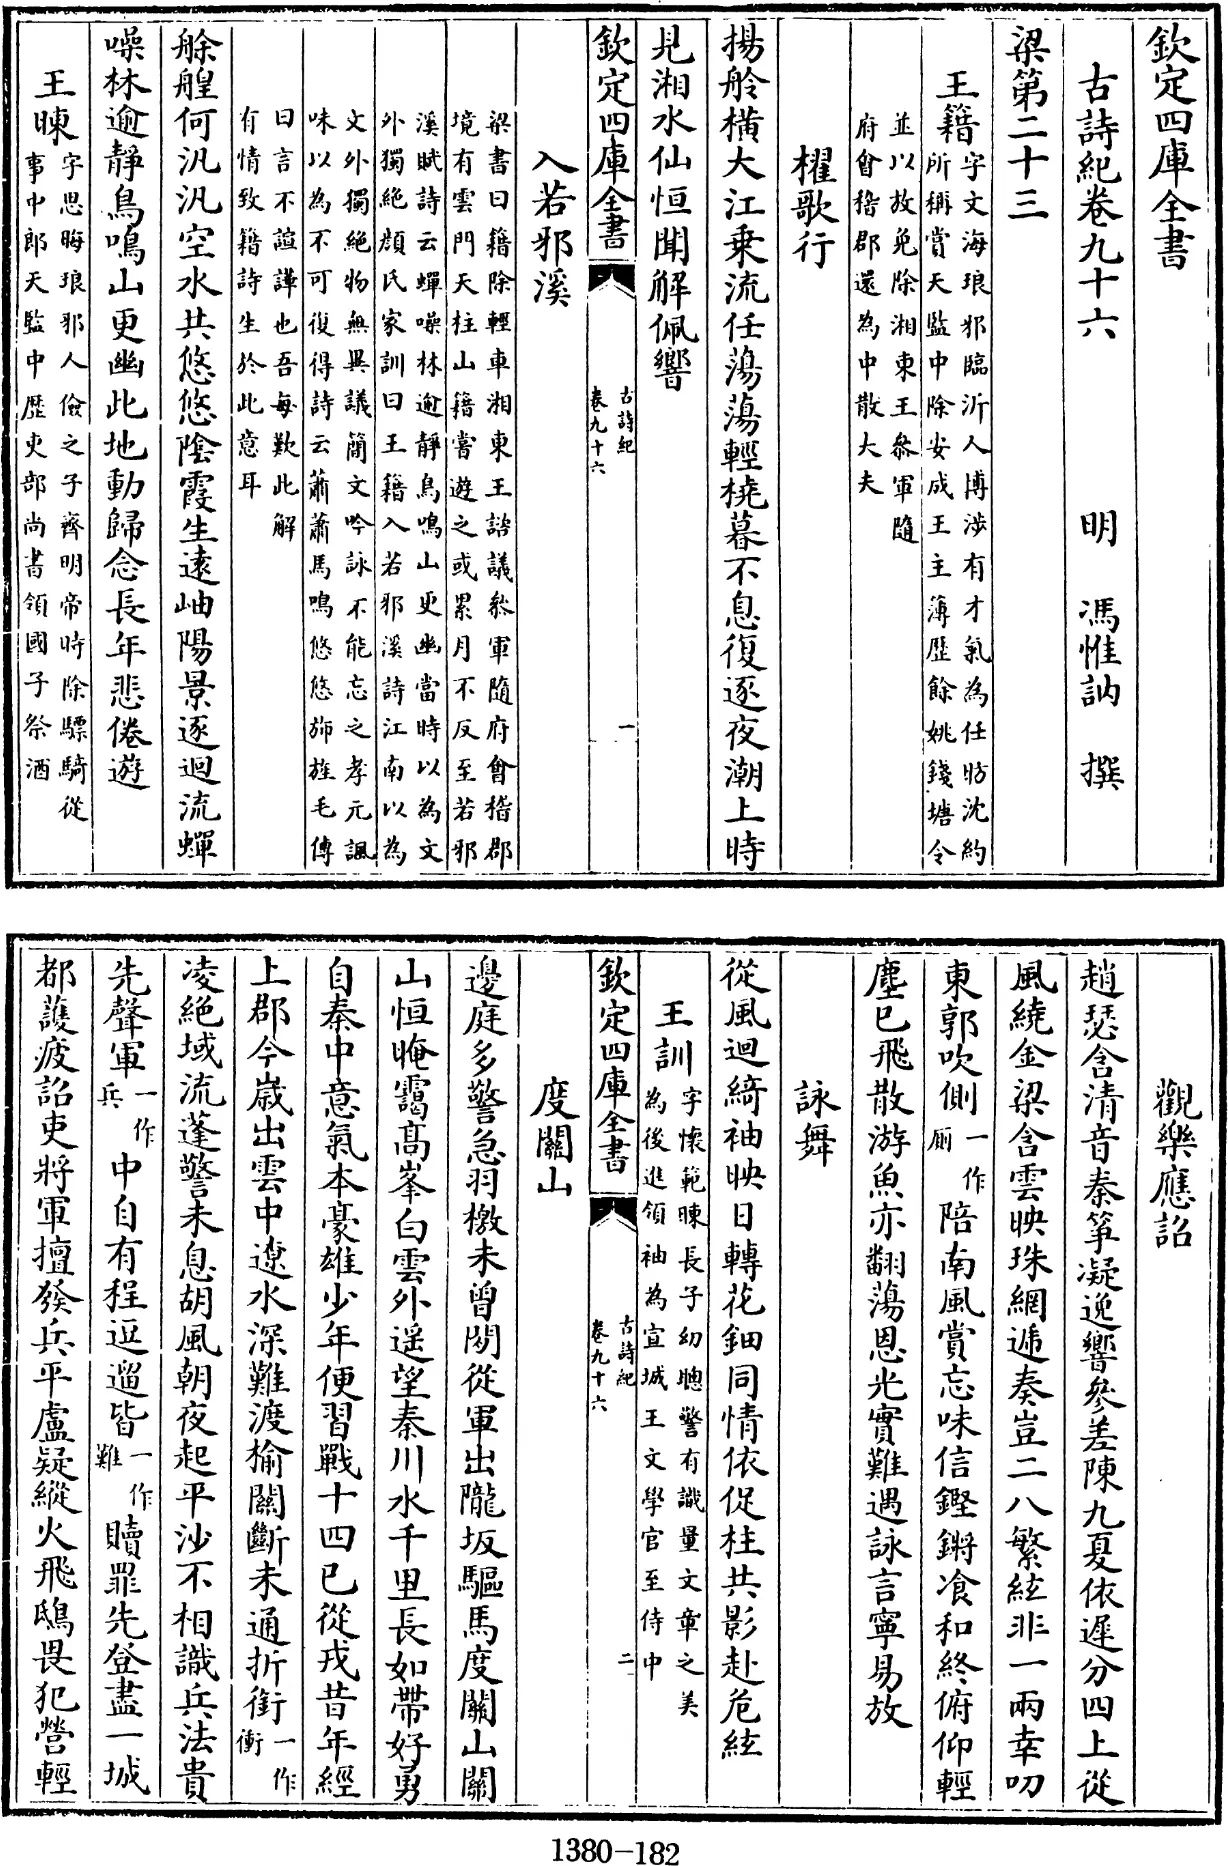 欽定四庫全書
古詩紀卷九十六　明　馮惟訥　撰
梁第二十三
王籍字文海琅邪臨沂人博涉有才氣為任昉沈約
所稱賞天監中除安成王主薄歷餘姚錢塘令
並以放免除湘東王叅軍隨
府會稽郡還為中散大夫
櫂歌行
揚舲橫大江乗流任蕩蕩輕橈暮不息復逐夜潮上時
見湘水仙恒聞解佩響
欽定四庫全書
古詩紀
卷九十六
一
入若邪溪
梁書曰籍除輕車湘東王諮議叅軍隨府會稽郡
境有雲門天柱山籍嘗遊之或累月不反至若邪
溪賦詩云蟬噪林逾靜鳥鳴山更幽當時以為文
外獨絶顔氏家訓曰王籍入若邪溪詩江南以為
文外獨絶物無異議簡文吟詠不能忘之孝元諷
味以為不可復得詩云蕭蕭馬鳴悠悠斾旌毛傳
曰言不諠譁也吾每歎此解
有情致籍詩生於此意耳
艅艎何汎汎空水共悠悠陰霞生遠岫陽景逐迴流蟬
噪林逾靜鳥鳴山更幽此地動歸念長年悲倦遊
王暕字思晦琅邪人儉之子齊明帝時除驃騎從
事中郎天監中歷吏部尚書領國子祭酒
觀樂應詔
趙瑟含清音秦箏凝逸響參差陳九夏依遲分四上從
風繞金梁含雲映珠網遞奏豈二八繁絃非一兩幸叨
東郭吹側一作
厠陪南風賞忘味信鏗鏘飡和終俯仰輕
塵已飛散游魚亦翻蕩恩光實難遇詠言寧易放
詠舞
從風迴綺袖映日轉花鈿同情依促柱共影赴危絃
王訓字懷範暕長子幼聰警有識量文章之美
為後進領袖為宣城王文學官至侍中
欽定四庫全書
古詩紀
卷九十六
二
度關山
邊庭多警急羽檄未曽閑從軍出隴坂驅馬度關山關
山恒晻靄髙峯白雲外遥望秦川水千里長如帶好勇
自秦中意氣本豪雄少年便習戰十四已從戎昔年經
上郡今歳出雲中遼水深難渡榆關斷未通折衝一作
衝
凌絶域流蓬警未息胡風朝夜起平沙不相識兵法貴
先聲軍一作
兵中自有程逗遛皆一作
難贖罪先登盡一城
都護疲詔吏將軍擅發兵平盧疑縱火飛鴟畏犯營輕
1380-182